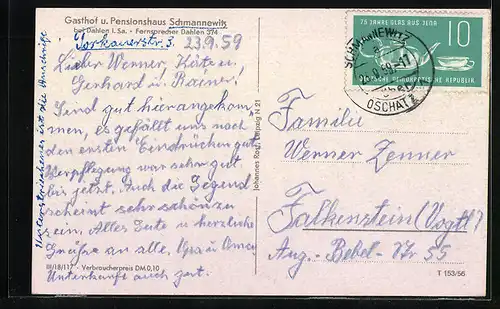 Gasthof u. Pensionshaus Schmannewitz
bei Dahlen i. Sa. - Fernsprecher Dahlen 374
23.9.59
Lieber Werner, Käte u.
Gerhard u. Rainer!
Sind gut hier angekom-
men, es gefällt uns nach
den ersten Eindrücken gut
Verpflegung war sehr gut
bis jetzt. Auch die Gegend
scheint sehr schön zu
sein. Alles Gute u. herzliche
Grüße an alle, Opa u. Oma
Unterkunft auch gut.
III/18/117 - Verbraucherpreis DM 0,10
Untenstehender ist die Anschrift
Johannes Leipzig N 21
75 JAHRE GLAS AUS JENA
10
DEUTSCHE DEMOKRATISCHE REPUBLIK
SCHMANNEWITZ
OSCHATZ
Familie
Werner Zenner
Falkenstein (Vogtl)
Aug.-Bebel-Str 55
T 153/56